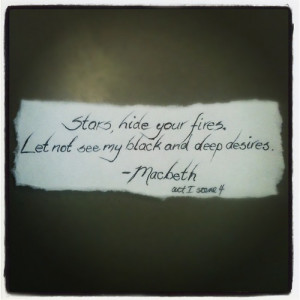 Stars, hide your fires.
Let not see my black and deep desires.
-Macbeth
act I scene 4